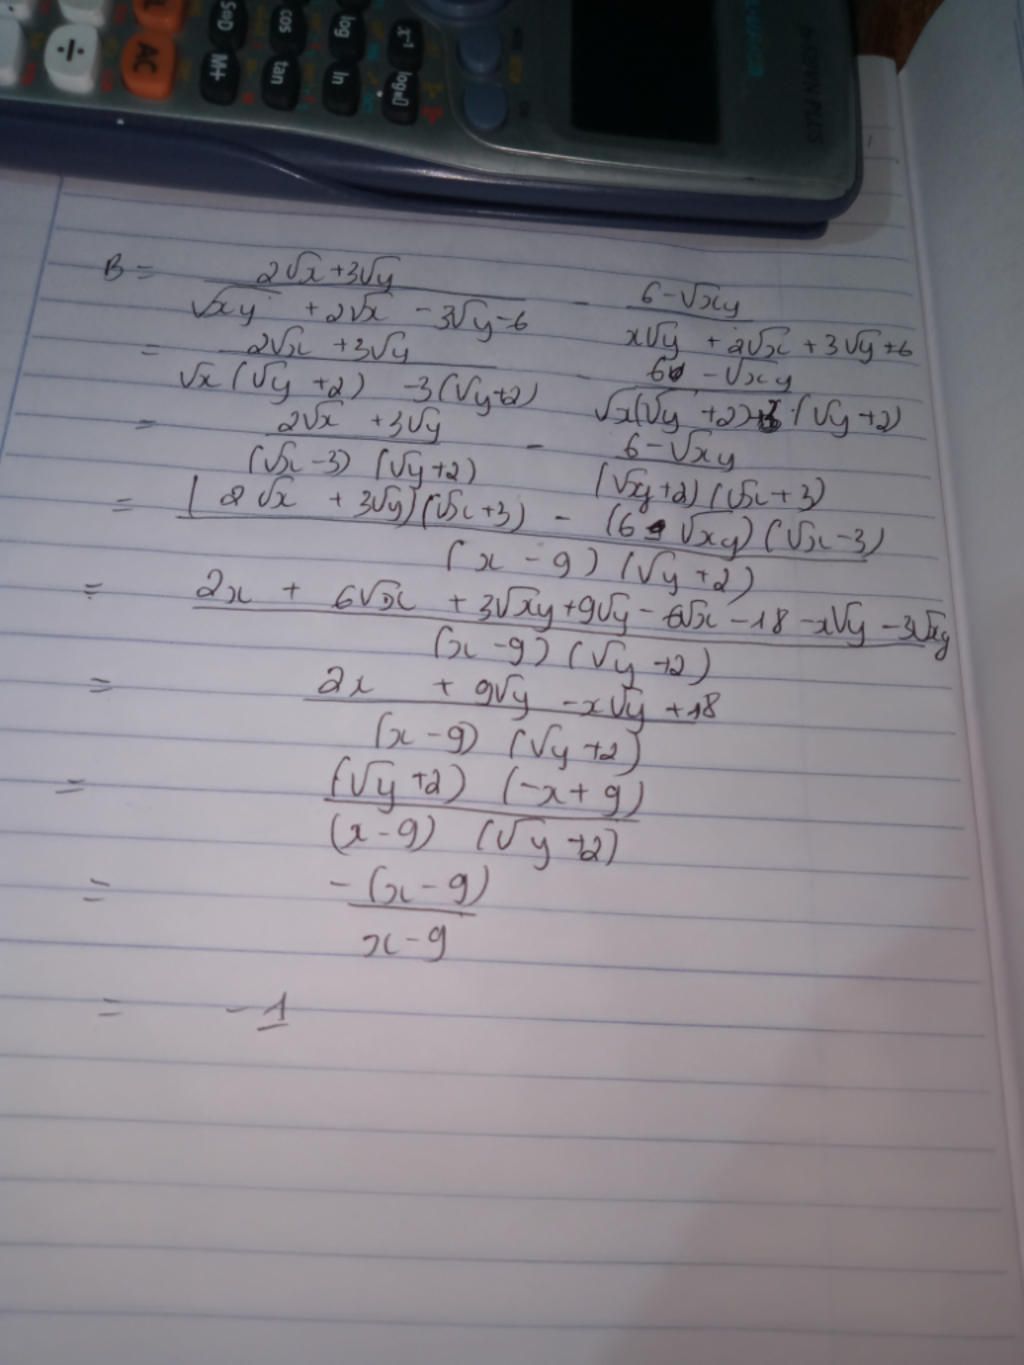 ÷ AC
S⇔D M+
cos tan
log ln
x⁻¹ log■□
B = (2√x + 3√y)/(√xy + 2√x - 3√y - 6) - (6 - √xy)/(x√y + 2√x + 3√y + 6)
= (2√x + 3√y)/(√x(√y + 2) - 3(√y + 2)) - (6 - √xy)/(√x(√y + 2) + 3 · (√y + 2))
= (2√x + 3√y)/((√x - 3)(√y + 2)) - (6 - √xy)/((√y + 2)(√x + 3))
= ((2√x + 3√y)(√x + 3) - (6 - √xy)(√x - 3))/((x - 9)(√y + 2))
= (2x + 6√x + 3√xy + 9√y - 6√x - 18 - x√y - 3√xy)/((x - 9)(√y + 2))
= (2x + 9√y - x√y + 18)/((x - 9)(√y + 2))
= ((√y + 2)(-x + 9))/((x - 9)(√y + 2))
= (-(x - 9))/(x - 9)
= -1